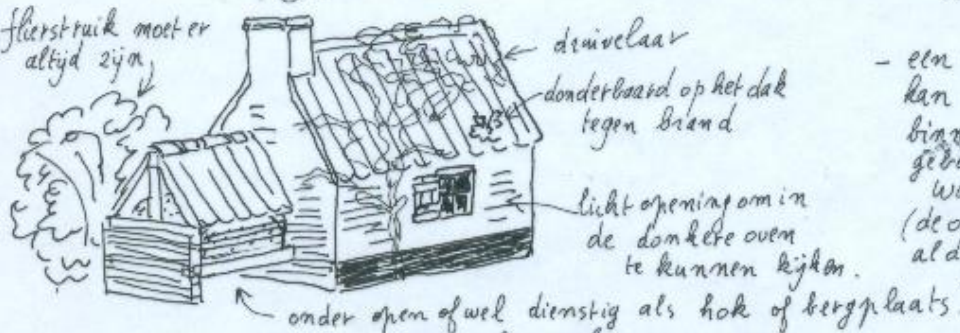 flierstruik moet er
altijd zijn
druivelaar
donderbaard op het dak
tegen brand
licht opening om in
de donkere oven
te kunnen kijken.
onder open ofwel dienstig als hok of bergplaats.
- een
kan